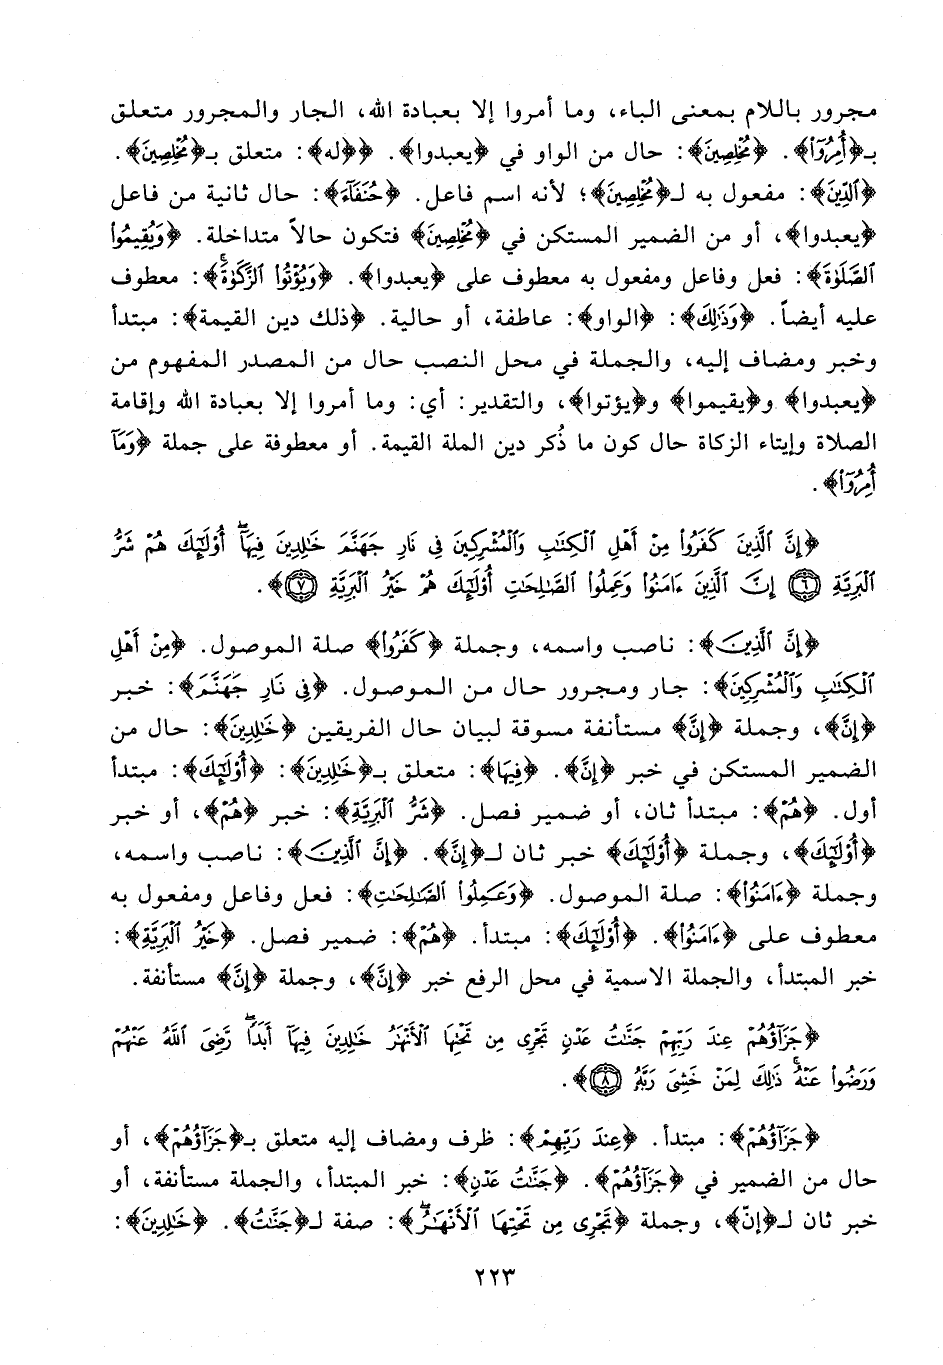 مجرور باللام بمعنى الباء، وما أمروا إلا بعبادة الله، الجار والمجرور متعلق
بـ﴿أُمِرُوٓا۟﴾. ﴿مُخْلِصِينَ﴾: حال من الواو في ﴿يعبدوا﴾. ﴿﴿له﴾: متعلق بـ﴿مُخْلِصِينَ﴾.
﴿ٱلدِّينَ﴾: مفعول به لـ﴿مُخْلِصِينَ﴾؛ لأنه اسم فاعل. ﴿حُنَفَآءَ﴾: حال ثانية من فاعل
﴿يعبدوا﴾، أو من الضمير المستكن في ﴿مُخْلِصِينَ﴾ فتكون حالاً متداخلة. ﴿وَيُقِيمُوا۟
ٱلصَّلَوٰةَ﴾: فعل وفاعل ومفعول به معطوف على ﴿يعبدوا﴾. ﴿وَيُؤْتُوا۟ ٱلزَّكَوٰةَۚ﴾: معطوف
عليه أيضاً. ﴿وَذَٰلِكَ﴾: ﴿الواو﴾: عاطفة، أو حالية. ﴿ذلك دين القيمة﴾: مبتدأ
وخبر ومضاف إليه، والجملة في محل النصب حال من المصدر المفهوم من
﴿يعبدوا﴾ و﴿يقيموا﴾ و﴿يؤتوا﴾، والتقدير: أي: وما أمروا إلا بعبادة الله وإقامة
الصلاة وإيتاء الزكاة حال كون ما ذُكر دين الملة القيمة. أو معطوفة على جملة ﴿وَمَآ
أُمِرُوٓا۟﴾.
﴿إِنَّ ٱلَّذِينَ كَفَرُوا۟ مِنْ أَهْلِ ٱلْكِتَٰبِ وَٱلْمُشْرِكِينَ فِى نَارِ جَهَنَّمَ خَٰلِدِينَ فِيهَآۚ أُو۟لَٰٓئِكَ هُمْ شَرُّ
ٱلْبَرِيَّةِ ٦ إِنَّ ٱلَّذِينَ ءَامَنُوا۟ وَعَمِلُوا۟ ٱلصَّٰلِحَٰتِ أُو۟لَٰٓئِكَ هُمْ خَيْرُ ٱلْبَرِيَّةِ ٧﴾.
﴿إِنَّ ٱلَّذِينَ﴾: ناصب واسمه، وجملة ﴿كَفَرُوا۟﴾ صلة الموصول. ﴿مِنْ أَهْلِ
ٱلْكِتَٰبِ وَٱلْمُشْرِكِينَ﴾: جار ومجرور حال من الموصول. ﴿فِى نَارِ جَهَنَّمَ﴾: خبر
﴿إِنَّ﴾، وجملة ﴿إِنَّ﴾ مستأنفة مسوقة لبيان حال الفريقين ﴿خَٰلِدِينَ﴾: حال من
الضمير المستكن في خبر ﴿إِنَّ﴾. ﴿فِيهَا﴾: متعلق بـ﴿خَٰلِدِينَ﴾: ﴿أُو۟لَٰٓئِكَ﴾: مبتدأ
أول. ﴿هُمْ﴾: مبتدأ ثان، أو ضمير فصل. ﴿شَرُّ ٱلْبَرِيَّةِ﴾: خبر ﴿هُمْ﴾، أو خبر
﴿أُو۟لَٰٓئِكَ﴾، وجملة ﴿أُو۟لَٰٓئِكَ﴾ خبر ثان لـ﴿إِنَّ﴾. ﴿إِنَّ ٱلَّذِينَ﴾: ناصب واسمه،
وجملة ﴿ءَامَنُوا۟﴾: صلة الموصول. ﴿وَعَمِلُوا۟ ٱلصَّٰلِحَٰتِ﴾: فعل وفاعل ومفعول به
معطوف على ﴿ءَامَنُوا۟﴾. ﴿أُو۟لَٰٓئِكَ﴾: مبتدأ. ﴿هُمْ﴾: ضمير فصل. ﴿خَيْرُ ٱلْبَرِيَّةِ﴾:
خبر المبتدأ، والجملة الاسمية في محل الرفع خبر ﴿إِنَّ﴾، وجملة ﴿إِنَّ﴾ مستأنفة.
﴿جَزَآؤُهُمْ عِندَ رَبِّهِمْ جَنَّٰتُ عَدْنٍ تَجْرِى مِن تَحْتِهَا ٱلْأَنْهَٰرُ خَٰلِدِينَ فِيهَآ أَبَدًاۖ رَّضِىَ ٱللَّهُ عَنْهُمْ
وَرَضُوا۟ عَنْهُۚ ذَٰلِكَ لِمَنْ خَشِىَ رَبَّهُۥ ٨﴾.
﴿جَزَآؤُهُمْ﴾: مبتدأ. ﴿عِندَ رَبِّهِمْ﴾: ظرف ومضاف إليه متعلق بـ﴿جَزَآؤُهُمْ﴾، أو
حال من الضمير في ﴿جَزَآؤُهُمْ﴾. ﴿جَنَّٰتُ عَدْنٍ﴾: خبر المبتدأ، والجملة مستأنفة، أو
خبر ثان لـ﴿إنّ﴾، وجملة ﴿تَجْرِى مِن تَحْتِهَا ٱلْأَنْهَٰرُۖ﴾: صفة لـ﴿جَنَّٰتُ﴾. ﴿خَٰلِدِينَ﴾:
٢٢٣